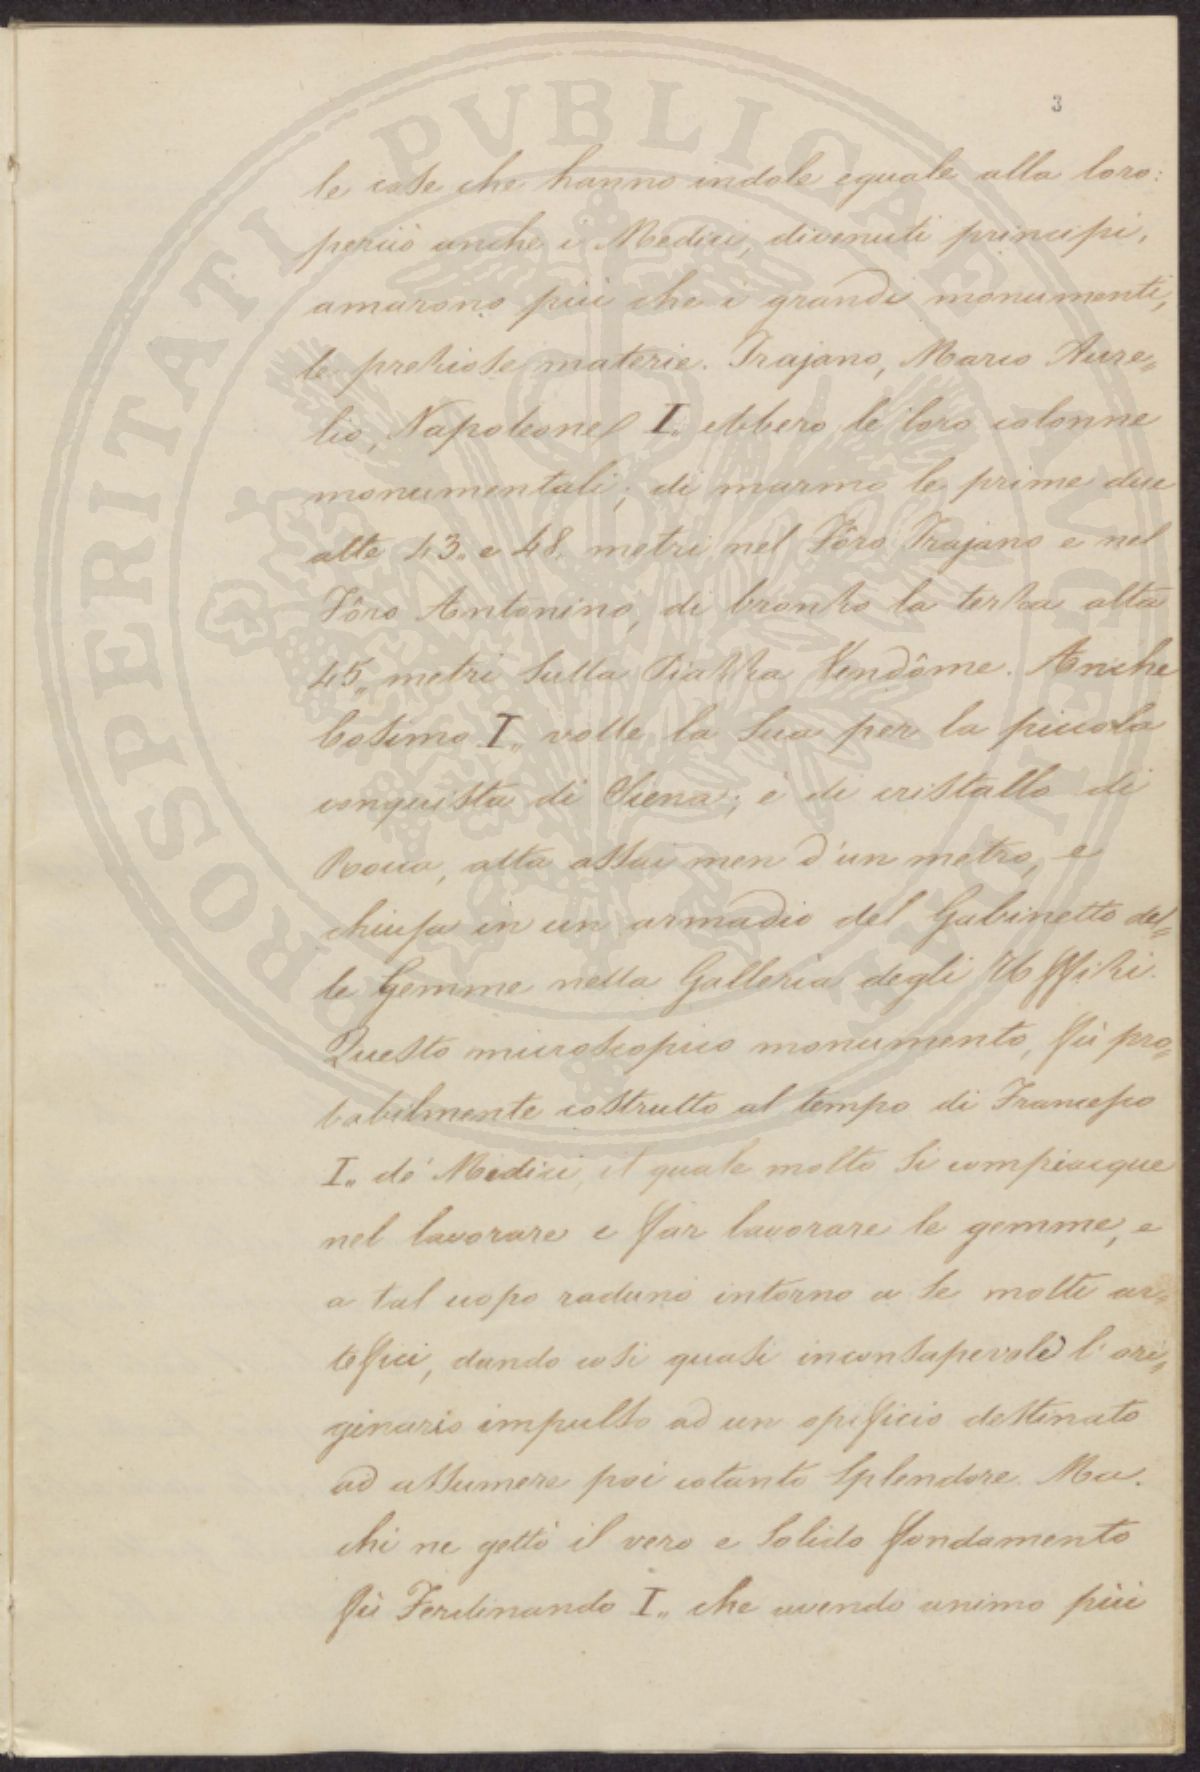 3
le cose che hanno indole eguale alla loro:
perciò anche i Medici, divenuti principi,
amarono più che i grandi monumenti,
le preziose materie. Trajano, Marco Aure=
lio, Napoleone I.. ebbero le loro colonne
monumentali; di marmo le prime due
alte 43.. e 48.. metri nel Fôro Trajano e nel
Fôro Antonino, di bronzo la terza alta
45.. metri sulla Piazza Vendôme. Anche
Cosimo I.. volle la sua per la piccola
conquista di Siena; è di cristallo di
Rocca, alta assai men d'un metro, e
chiusa in un armadio del Gabinetto del=
le Gemme nella Galleria degli Uffizi.
Questo microscopico monumento, fù pro=
babilmente costrutto al tempo di Francesco
I.. de' Medici, il quale molto si compiacque
nel lavorare e far lavorare le gemme, e
a tal uopo radunò intorno a se molti ar=
tefici, dando così quasi inconsapevole l'ori=
ginario impulso ad un opificio destinato
ad assumere poi cotanto splendore. Ma.
chi ne gettò il vero e solido fondamento
fù Ferdinando I.. che avendo animo più
PROSPERITATI PVBLICAE AVGENDAE